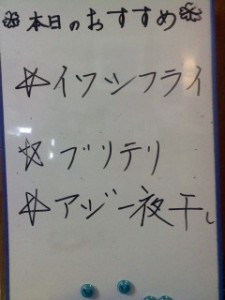 本日のおすすめ
☆イワシフライ
☆ブリテリ
☆アジ一夜干し